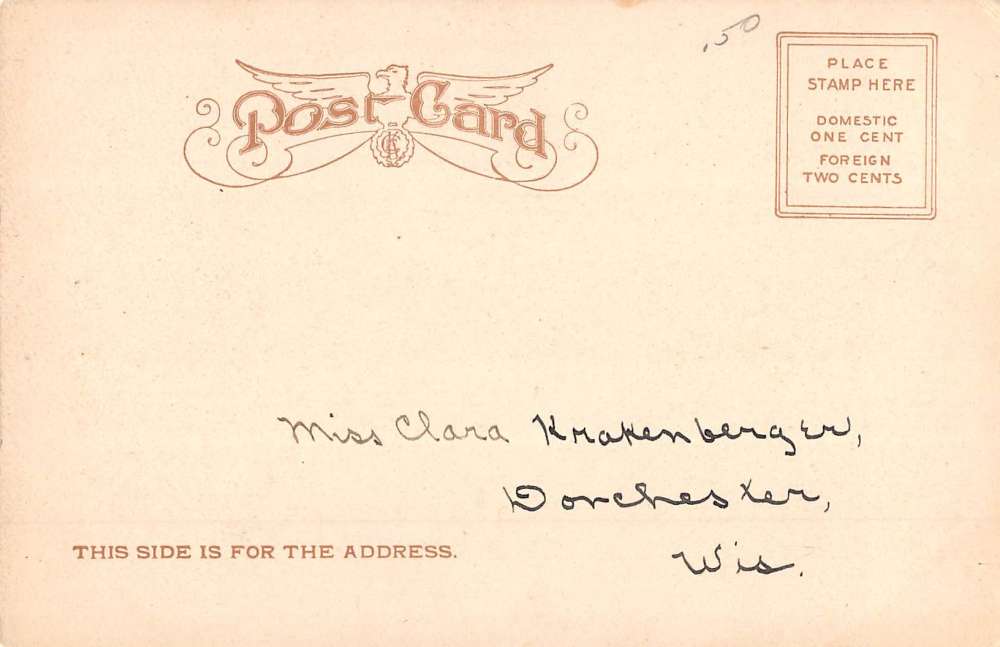 .50
Post Card
PLACE
STAMP HERE
DOMESTIC
ONE CENT
FOREIGN
TWO CENTS
Miss Clara Krakenberger,
Dorchester,
Wis.
THIS SIDE IS FOR THE ADDRESS.